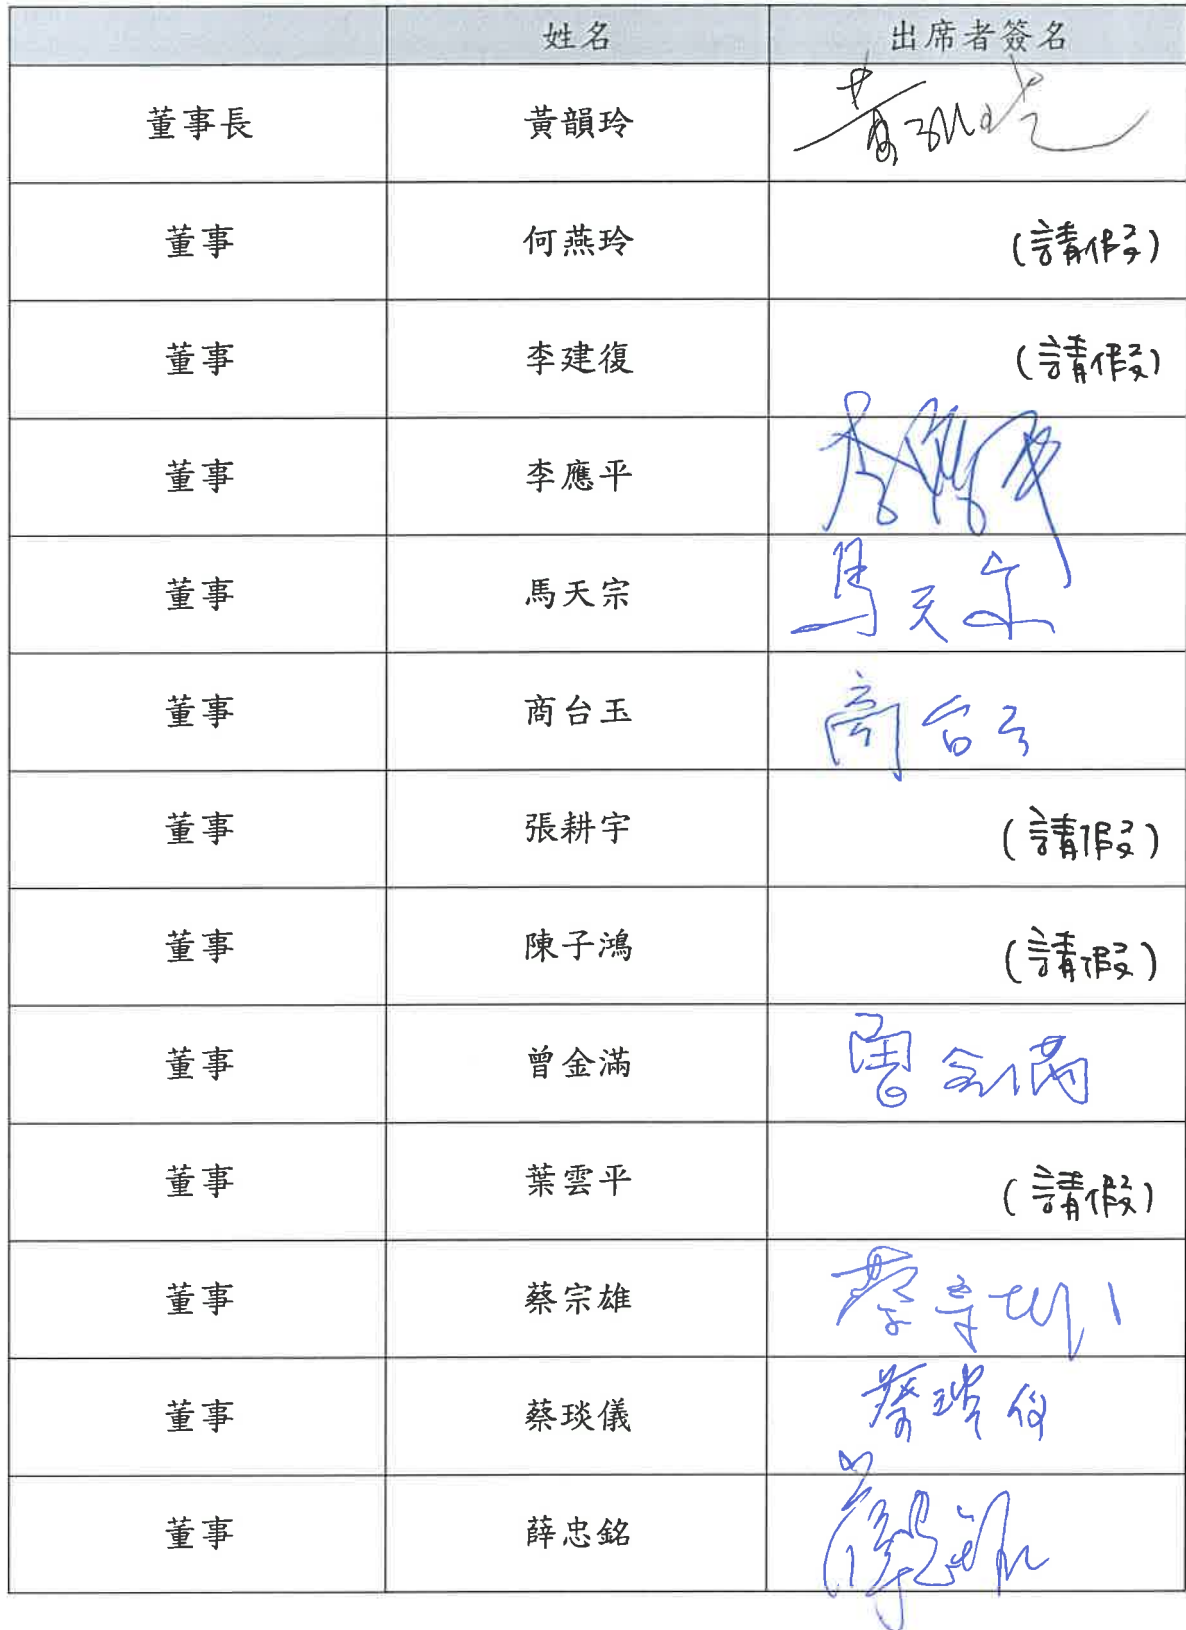 姓名 出席者簽名
董事長 黃韻玲
董事 何燕玲 (請假)
董事 李建復 (請假)
董事 李應平 李應平
董事 馬天宗 馬天宗
董事 商台玉 商台玉
董事 張耕宇 (請假)
董事 陳子鴻 (請假)
董事 曾金滿 曾金滿
董事 葉雲平 (請假)
董事 蔡宗雄 蔡宗雄
董事 蔡琰儀 蔡琰儀
董事 薛忠銘 薛忠銘